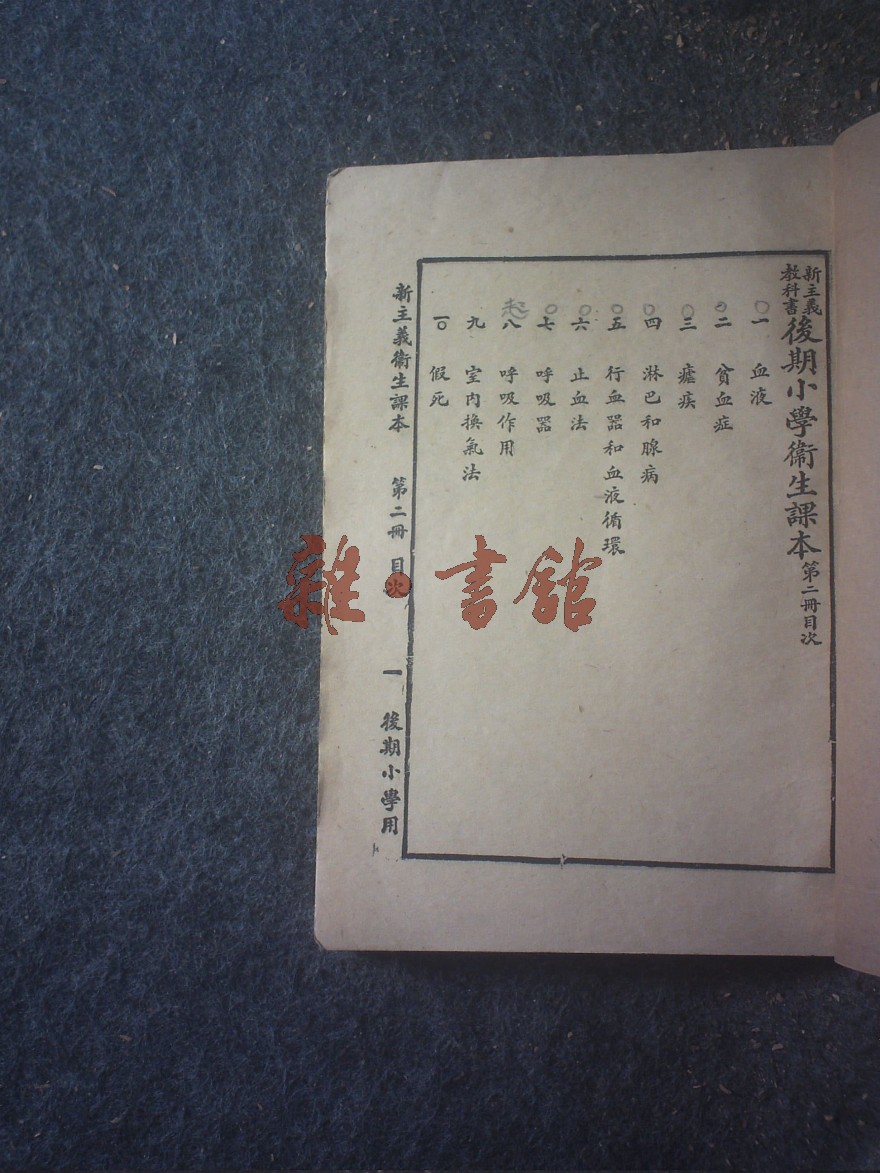 新主義
教科書
後期小學衞生課本第二冊目次
一 血液
二 貧血症
三 瘧疾
四 淋巴和腺病
五 行血器和血液循環
六 止血法
七 呼吸器
八 呼吸作用
九 室內換氣法
一〇 假死
新主義衞生課本 第二冊 目次 一 後期小學用
雜·書館